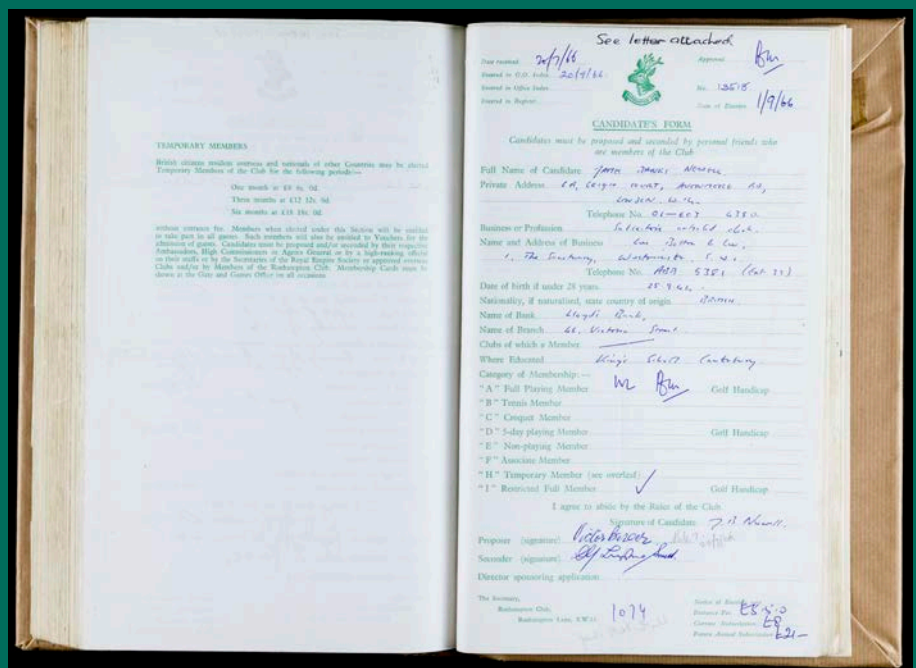 TEMPORARY MEMBERS
British citizens resident overseas and nationals of other Countries may be elected
Temporary Members of the Club for the following periods:—
One month at £6 6s. 0d.
Three months at £12 12s. 0d.
Six months at £18 18s. 0d.
without entrance fee. Members when elected under this Section will be entitled
to take part in all games. Such members will also be entitled to Vouchers for the
admission of guests. Candidates must be proposed and/or seconded by their respective
Ambassadors, High Commissioners or Agents General or by a high-ranking official
on their staffs or by the Secretaries of the Royal Empire Society or approved overseas
Clubs and/or by Members of the Roehampton Club. Membership Cards must be
shown at the Gate and Games Office on all occasions.
See letter attached
Date received 20/7/66
Approved
Entered in G.O. Index 20/9/66
Entered in Office Index
No. 13515
Entered in Register
Date of Election 1/9/66
CANDIDATE'S FORM
Candidates must be proposed and seconded by personal friends who
are members of the Club
Full Name of Candidate
Private Address
LONDON
Telephone No. 01-603 6380
Business or Profession Solicitor's articled clerk.
Name and Address of Business
1, The Sanctuary, Westminster S.W.1.
Telephone No. ABB 5351
Date of birth if under 28 years
Nationality, if naturalised, state country of origin BRITISH
Name of Bank Lloyds Bank,
Name of Branch 66, Victoria Street
Clubs of which a Member
Where Educated King's School Canterbury
Category of Membership:—
"A" Full Playing Member Golf Handicap
"B" Tennis Member
"C" Croquet Member
"D" 5-day playing Member Golf Handicap
"E" Non-playing Member
"F" Associate Member
"H" Temporary Member (see overleaf)
"I" Restricted Full Member Golf Handicap
I agree to abide by the Rules of the Club.
Signature of Candidate
Proposer (signature) Victor Berger
Seconder (signature)
Director sponsoring application
The Secretary,
Roehampton Club,
Roehampton Lane, S.W.15.
1074
Notice of Election
Entrance Fee £5.5.0
Current Subscription £8
Future Annual Subscription £21—